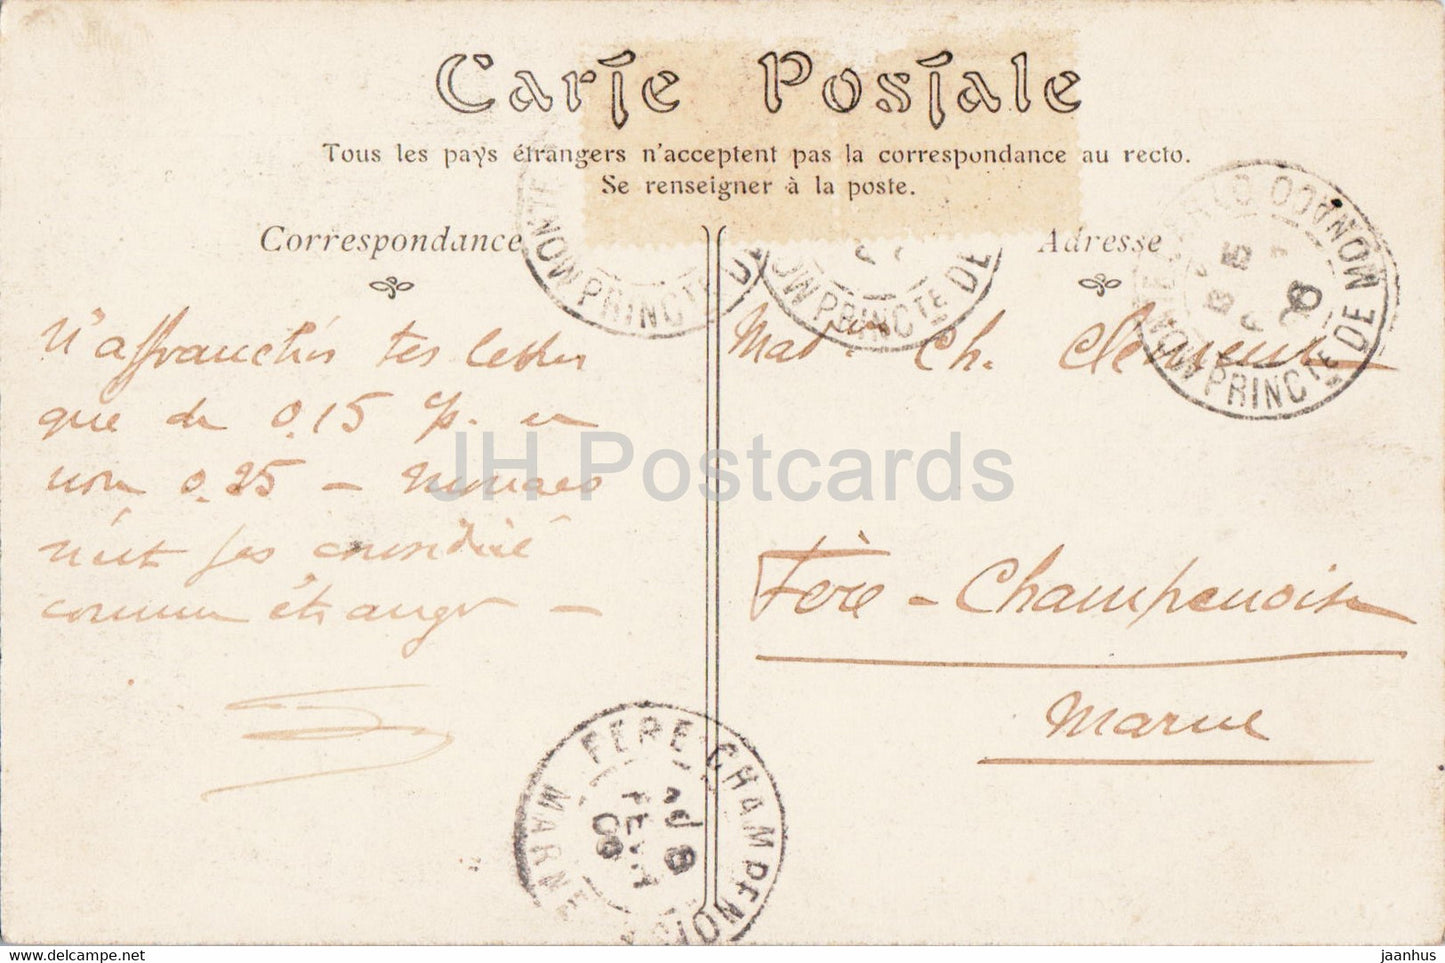 Carte Postale
Tous les pays étrangers n'acceptent pas la correspondance au recto.
Se renseigner à la poste.
Correspondance
Adresse
N'affranchis tes lettres
que de 0.15 c/. en
non 0.25 – Monaco
n'est pas considéré
comme étranger –
Mad Ch. Clément
Fère-Champenoise
Marne
MONACO PRINCTE DE
PRINCTE DE
MONACO PRINCTE DE
FERE-CHAMPENOISE MARNE
8
FEVR
06
JH Postcards
www.delcampe.net
jaanhus